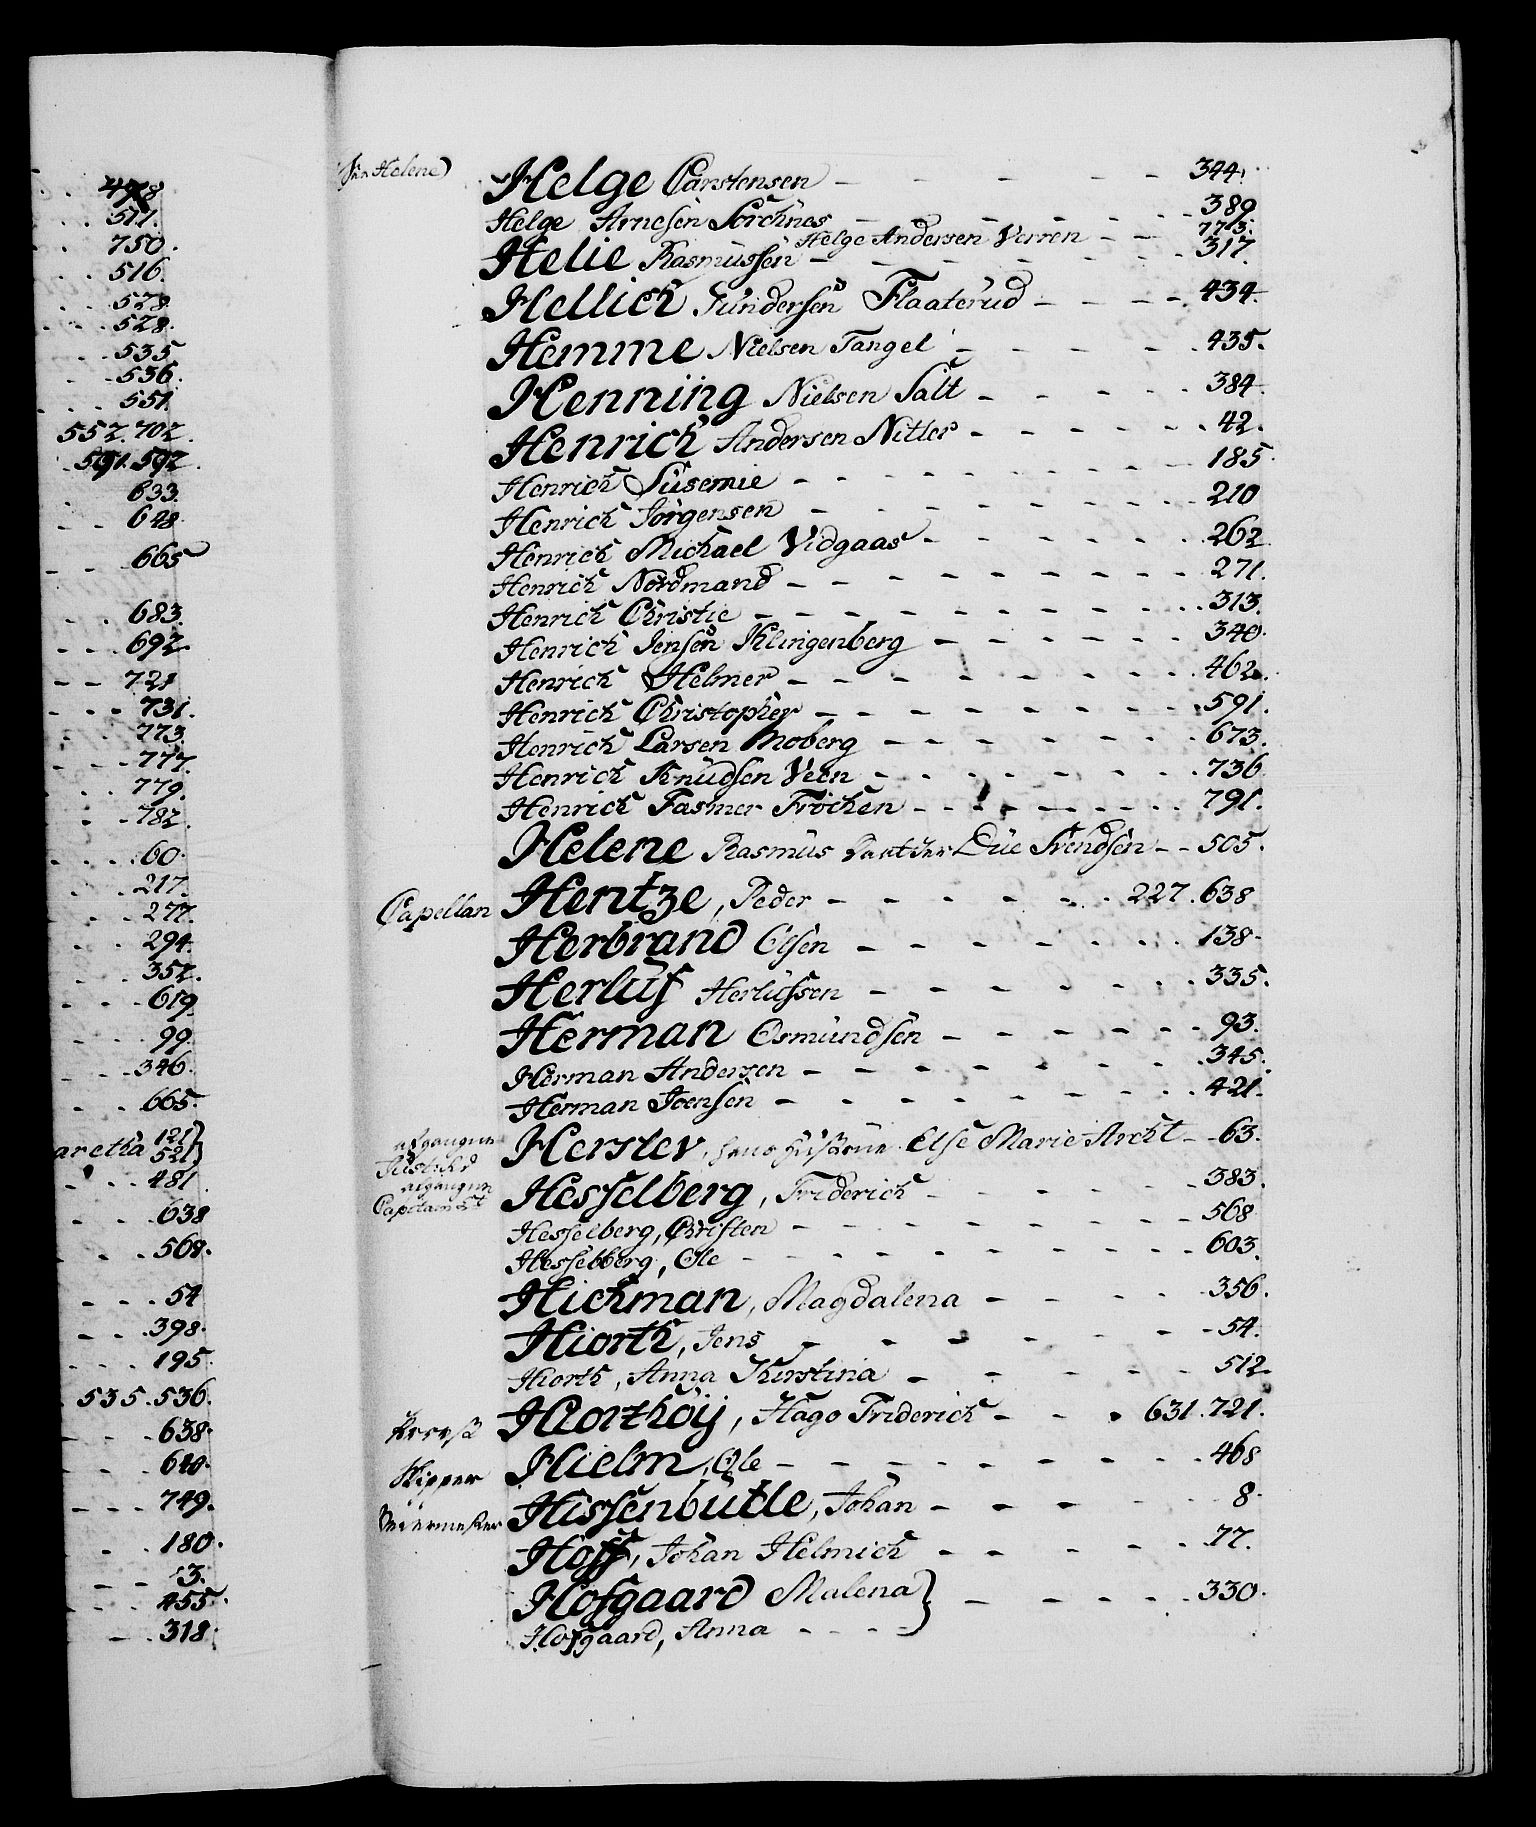 498
511.
750.
516.
528.
528.
535
536.
551.
552.702.
591.592.
633.
648.
665
683.
692.
721
731.
773.
777.
779.
782.
60.
217.
277.
294.
352.
619.
99.
346.
665.
aretha 121 } 521
481
638
568.
54
398.
195.
535.536.
638.
640.
749.
180.
3.
455.
318.
Helene)
Helge Carstensen - - - - - 344.
Helge Arnesen - - - - - 389
Helge Andersen Verren - - 773.
Helie Rasmussen - - - - - 317.
Hellich Gundersen Flaaterud - - - - 434.
Hemme Nielsen Tangel - - - - 435.
Henning Nielsen Salt - - - - 384.
Henrich Andersen Nitter - - - - - 42.
Henrich Susemie - - - - - 185.
Henrich Jörgensen - - - - - 210
Henrich Michael Vidgaas - - - - - 262
Henrich Nordmand - - - - - 271.
Henrich Christie - - - - - 313.
Henrich Jensen Klingenberg - - - - - 340.
Henrich Helmer - - - - - 462.
Henrich Christopher - - - - - 591.
Henrich Larsen Moberg - - - - - 673.
Henrich Knudsen Veen - - - - - 736
Henrich Fasmer Fröchen - - - - - 791.
Helene Rasmus Due Svendsen - - 505.
Capellan Hentze, Peder - - - - - 227.638
Herbrand Olsen - - - - - 138.
Herluf Herlufsen - - - - - 335.
Herman Osmundsen - - - - - 93.
Herman Andersen - - - - - 345.
Herman Joensen - - - - - 421.
afgangne Hersler, Else Marie Archt - - 63.
afgangne Capitain Hesselberg, Friderich - - - - - 383.
Hesselberg, Christen - - - - - 568
Hesselberg, Ole - - - - - 603.
Hickman, Magdalena - - - - 356.
Hiorth, Jens - - - - - 54.
Hiorth, Anna Kirstina - - - - - 512.
Hiorthöy, Hago Friderich - - - 631.721.
Skipper Hielm, Ole - - - - - 468
Hissenbutle, Johan - - - - 8.
Hoff, Johan Helmich - - - - - 77.
Hofgaard Malena } - - - - - 330.
Hofgaard, Anna - - - -